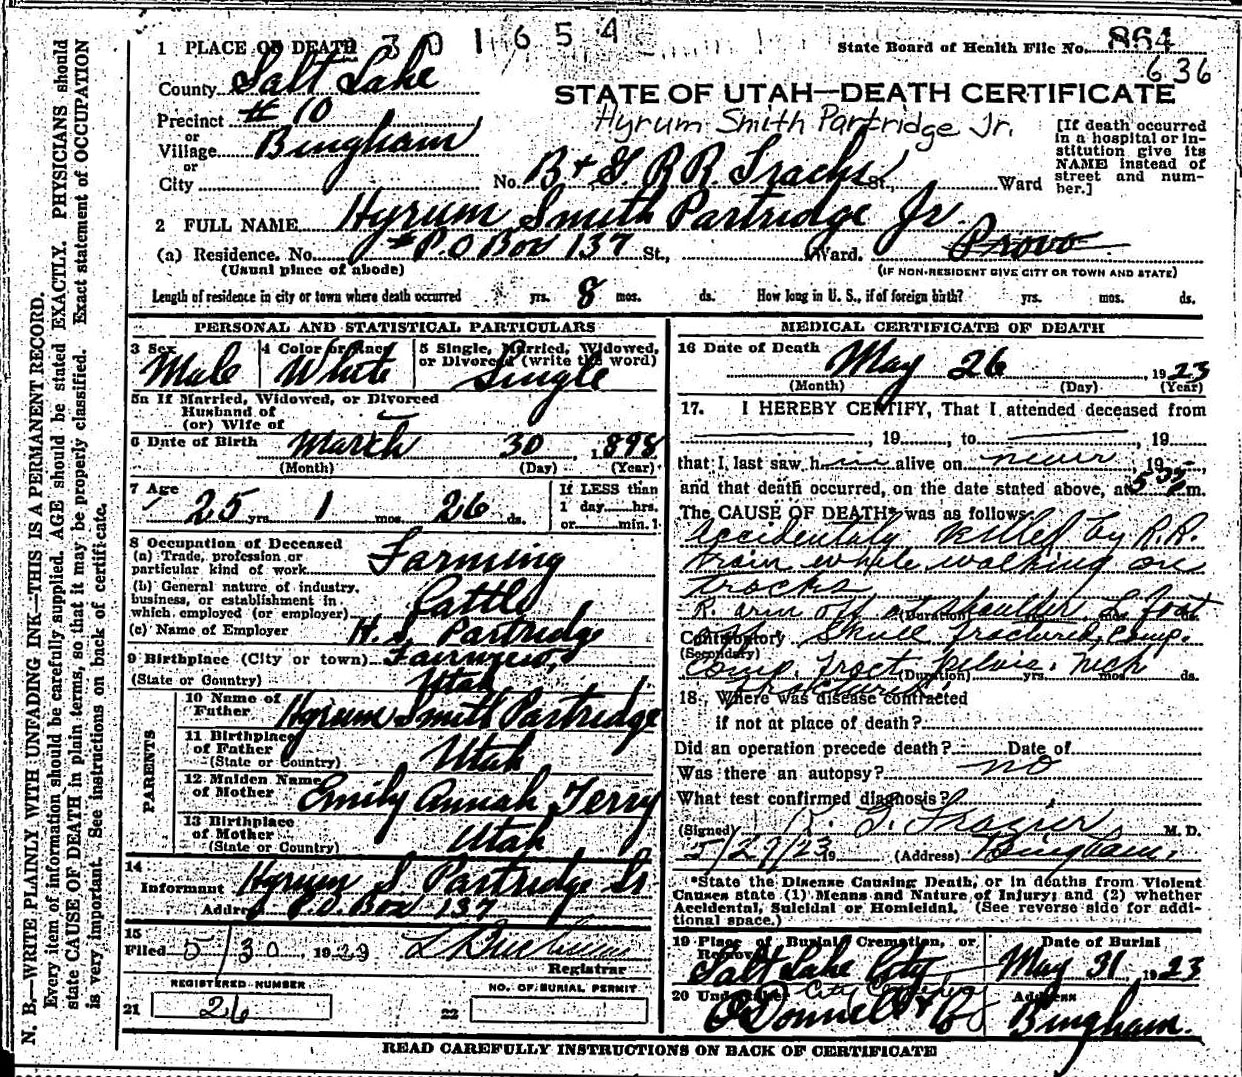 1 PLACE OF DEATH 2301654
State Board of Health File No. 864
636
County Salt Lake
STATE OF UTAH—DEATH CERTIFICATE
Precinct # 10
Hyrum Smith Partridge Jr.
[If death occurred in a hospital or institution give its NAME instead of street and number.]
or
Village Bingham
or
City
No. B + G. R R. Tracks St., Ward
2 FULL NAME Hyrum Smith Partridge Jr.
(a) Residence. No. P.O Box 137 St., Ward. Provo
(Usual place of abode)
(IF NON-RESIDENT GIVE CITY OR TOWN AND STATE)
Length of residence in city or town where death occurred yrs. 8 mos. ds. How long in U. S., if of foreign birth? yrs. mos. ds.
PERSONAL AND STATISTICAL PARTICULARS
3 Sex Male
4 Color or Race White
5 Single, Married, Widowed, or Divorced (write the word) Single
5a If Married, Widowed, or Divorced
Husband of
(or) Wife of
6 Date of Birth March 30, 1898
(Month) (Day) (Year)
7 Age 25 yrs. 1 mos. 26 ds.
If LESS than
1 day hrs.
or min.
8 Occupation of Deceased
(a) Trade, profession or particular kind of work Farming
(b) General nature of industry, business, or establishment in which employed (or employer) Cattle
(c) Name of Employer H. S. Partridge
9 Birthplace (City or town) Fairview,
(State or Country) Utah
PARENTS
10 Name of Father Hyrum Smith Partridge
11 Birthplace of Father (State or Country) Utah
12 Maiden Name of Mother Emily Annah Terry
13 Birthplace of Mother (State or Country) Utah
14
Informant Hyrum S. Partridge Sr.
Address P.O. Box 137
15
Filed 5/30, 1923
Registrar
REGISTERED NUMBER
21 26
NO. OF BURIAL PERMIT
22
MEDICAL CERTIFICATE OF DEATH
16 Date of Death May 26, 1923
(Month) (Day) (Year)
17. I HEREBY CERTIFY, That I attended deceased from
, 19 , to , 19
that I last saw him alive on never, 19 ,
and that death occurred, on the date stated above, at m.
The CAUSE OF DEATH* was as follows:
accidentaly killed by R.R.
train while walking on
tracks
R. arm off at shoulder L. foot
(Duration)
Contributory Skull fractured, Comp.
(Secondary)
Comp. Fract Pelvis. Neck
(Duration) yrs. mos. ds.
18. Where was disease contracted
if not at place of death?
Did an operation precede death? Date of
Was there an autopsy? no
What test confirmed diagnosis?
(Signed) R. G. Frazier M. D.
5/27/23 19 (Address) Bingham.
*State the Disease Causing Death, or in deaths from Violent Causes state (1) Means and Nature of Injury; and (2) whether Accidental, Suicidal or Homicidal. (See reverse side for additional space.)
19 Place of Burial Cremation, or Removal Salt Lake City
City Cemetery
Date of Burial May 31, 1923
20 Undertaker O'Donnell & Co
Address Bingham.
READ CAREFULLY INSTRUCTIONS ON BACK OF CERTIFICATE
N. B.—WRITE PLAINLY WITH UNFADING INK—THIS IS A PERMANENT RECORD.
Every item of information should be carefully supplied. AGE should be stated EXACTLY. PHYSICIANS should
state CAUSE OF DEATH in plain terms, so that it may be properly classified. Exact statement of OCCUPATION
is very important. See instructions on back of certificate.